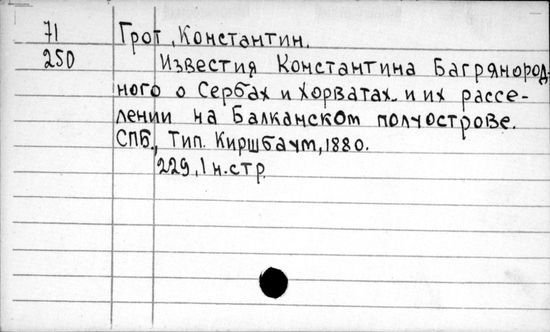 71 Грот, Константин.
250 Известия Константина Багрянород-
ного о Сербах и Хорватах и их рассе-
лении на Балканском полуострове.
СПБ., Тип. Киршбаум, 1880.
229, 1 н.стр.